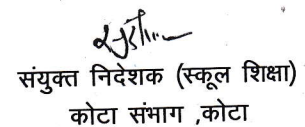 संयुक्त निदेशक (स्कूल शिक्षा)
कोटा संभाग ,कोटा